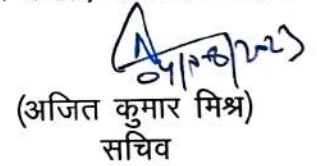 04/08/2023
(अजित कुमार मिश्र)
सचिव